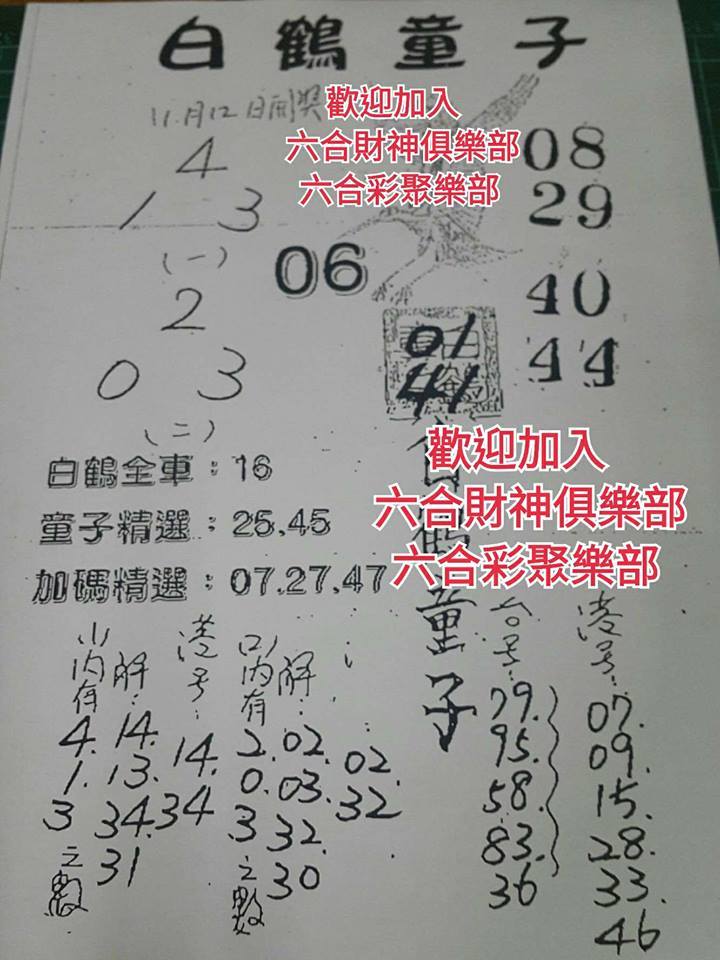 白鶴童子
11月12日開獎
歡迎加入
六合財神俱樂部
六合彩聚樂部
4
1 3
(一)
2
0 3
(二)
06
08
29
40
44
01
41
白鶴童子
歡迎加入
六合財神俱樂部
六合彩聚樂部
白鶴全車：16
童子精選：25.45
加碼精選：07.27.47
(一)內有
4.
1.
3
之數
解：
14.
13.
34.
31
港号：
14.
34
(二)內有
2.
0.
3
之數
解：
02.
03.
32.
30
：
02.
32
台号：
79.
95.
58.
83.
36
港号：
07.
09.
15.
28.
33.
46